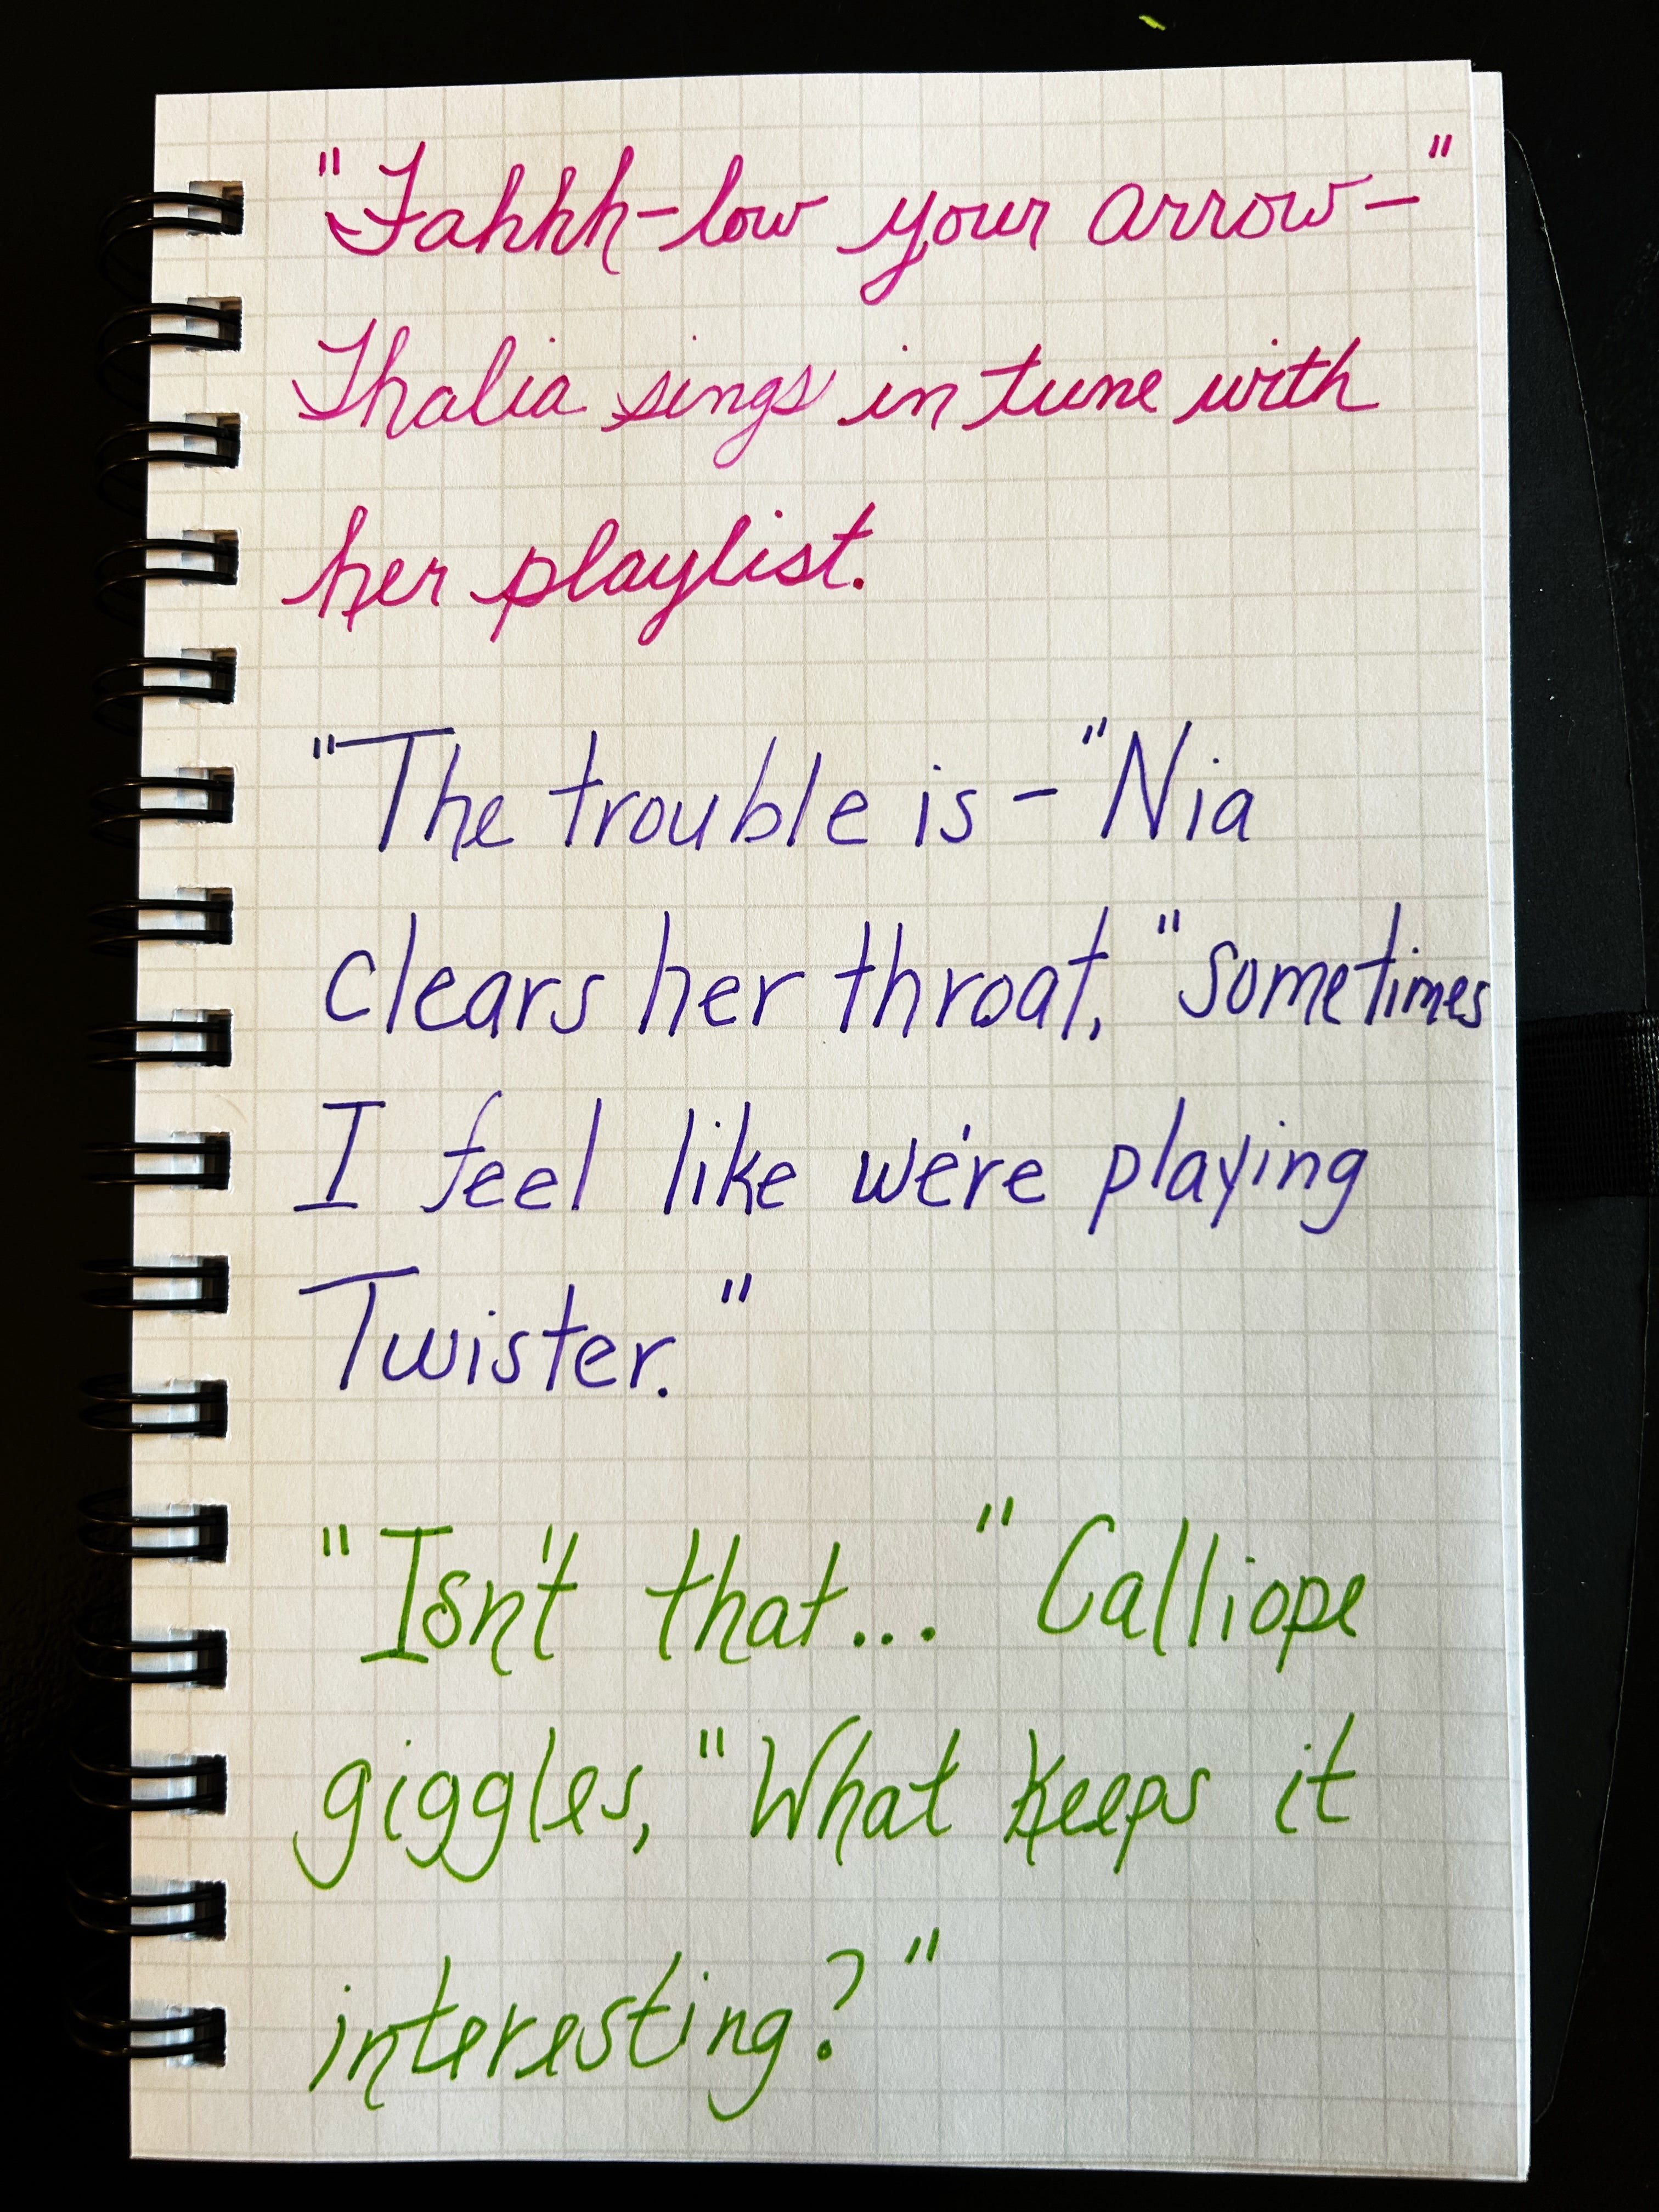 "Fahhh-low your arrow-"
Thalia sings in tune with
her playlist.
"The trouble is-" Nia
clears her throat, "sometimes
I feel like we're playing
Twister."
"Isn't that..." Calliope
giggles, "What keeps it
interesting?"